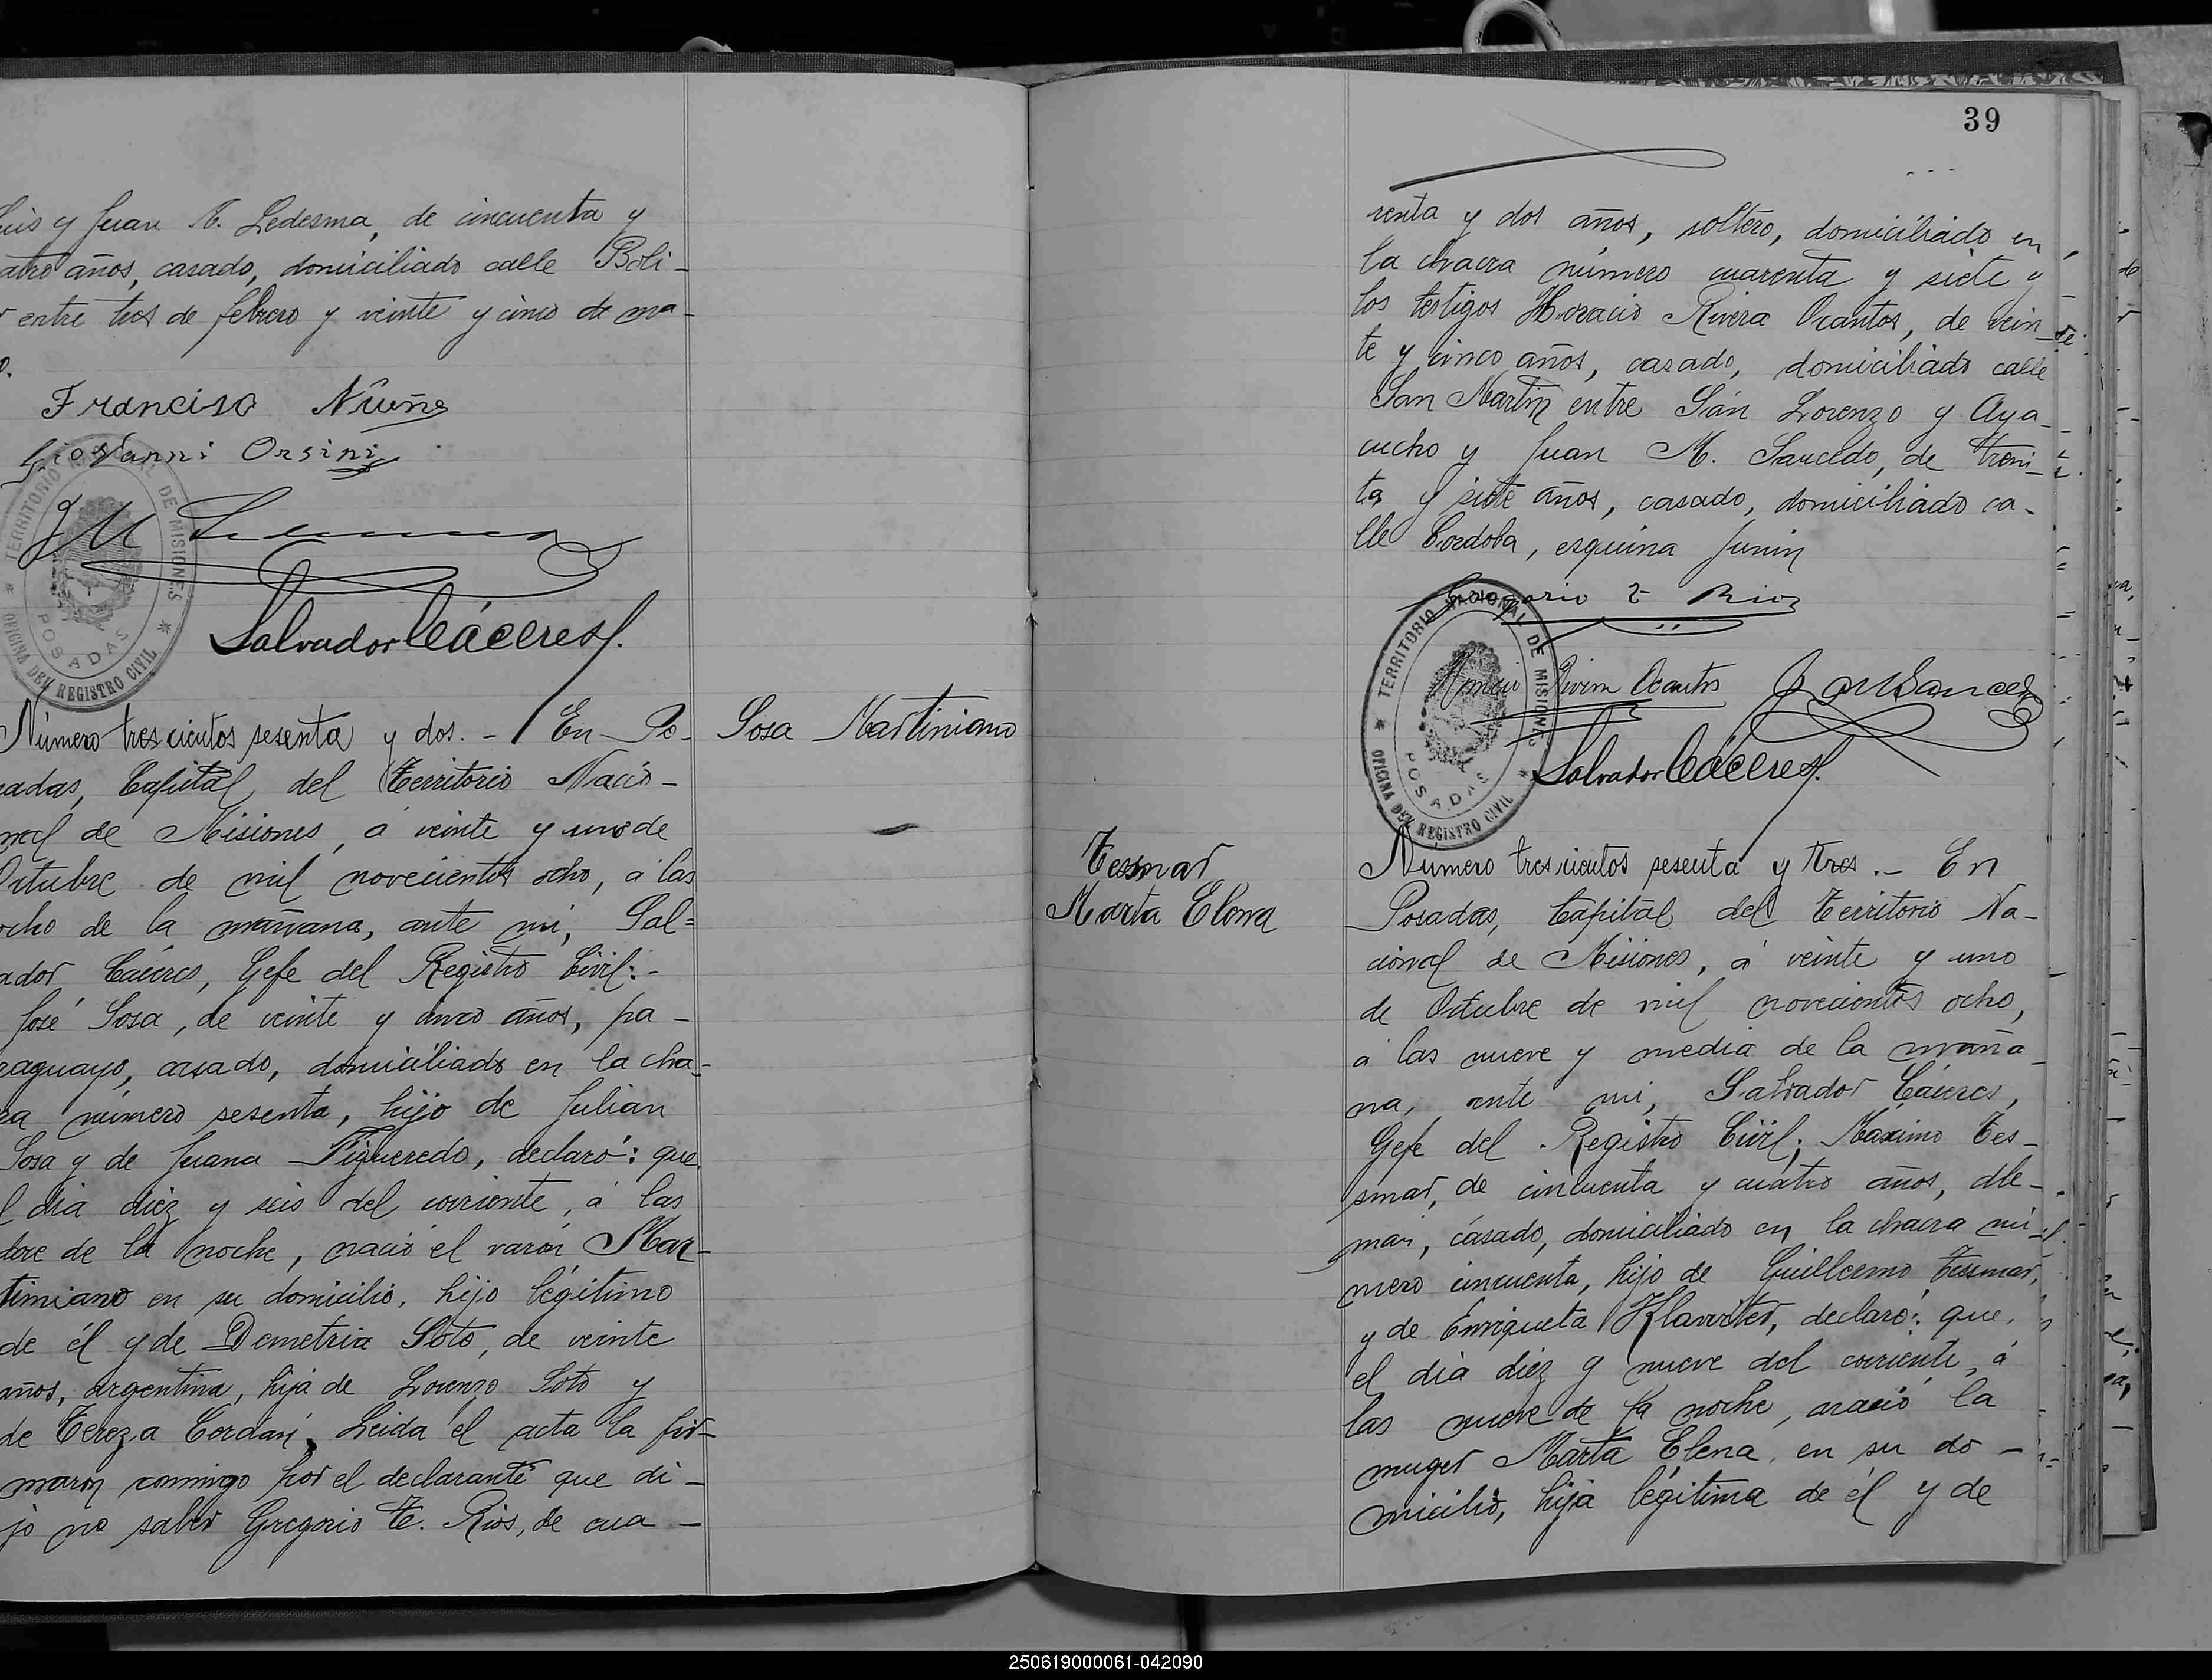 Luis y Juan M. Ledesma, de cincuenta y
atro años, casado, domiciliado calle Boli-
r entre tres de febrero y veinte y cinco de ma-
o.
Francisco Núñe
Giovanni Orsini
JM Ledesma
Salvador Cáceres.
TERRITORIO NACIONAL DE MISIONES
POSADAS
OFICINA DEL REGISTRO CIVIL
Número trescientos sesenta y dos. - En Po-
Sosa Martiniano
sadas, Capital del Territorio Nacio-
nal de Misiones, á veinte y uno de
Octubre de mil novecientos ocho, á las
ocho de la mañana, ante mi, Sal=
ador Cáceres, Gefe del Registro Civil:-
José Sosa, de veinte y cinco años, pa-
raguayo, casado, domiciliado en la cha-
ra número sesenta, hijo de Julian
Sosa y de Juana Figueredo, declaró: que
l dia diez y seis del corriente, á las
doce de la noche, nació el varón Mar-
timiano en su domicilio, hijo légitimo
de él y de Demetria Soto, de veinte
años, argentina, hija de Lorenzo Soto y
de Tereza Cerdán, Leida el acta la fir-
maron conmigo por el declarante que di-
jo no saber Gregorio T. Rios, de cua-
39
renta y dos años, soltero, domiciliado en
la chacra número cuarenta y siete y
los testigos Horacio Rivera Ocantos, de vein
te y cinco años, casado, domiciliado calle
San Martin entre San Lorenzo y Aya-
cucho y Juan M. Saucedo, de trein-
ta y siete años, casado, domiciliado ca-
lle Cordoba, esquina Junin
Gregorio T Rios
Horacio Rivera Ocantos J M Sauced
Salvador Cáceres.
TERRITORIO NACIONAL DE MISIONES
POSADAS
OFICINA DEL REGISTRO CIVIL
Tessmar
Marta Elena
Número trescientos sesenta y tres. - En
Posadas, Capital del Territorio Na-
cional de Misiones, á veinte y uno
de Octubre de mil novecientos ocho,
á las nueve y media de la maña-
na, ante mi, Salvador Cáceres,
Gefe del Registro Civil; Máximo Tes-
smar, de cincuenta y cuatro años, ale-
mán, casado, domiciliado en la chacra nú-
mero cincuenta, hijo de Guillermo Tessmar,
y de Enriqueta Klawiter, declaró: que,
el dia diez y nueve del corriente, á
las nueve de la noche, nació la
muger Marta Elena, en su do-
micilio, hija légitima de él y de
250619000061-042090